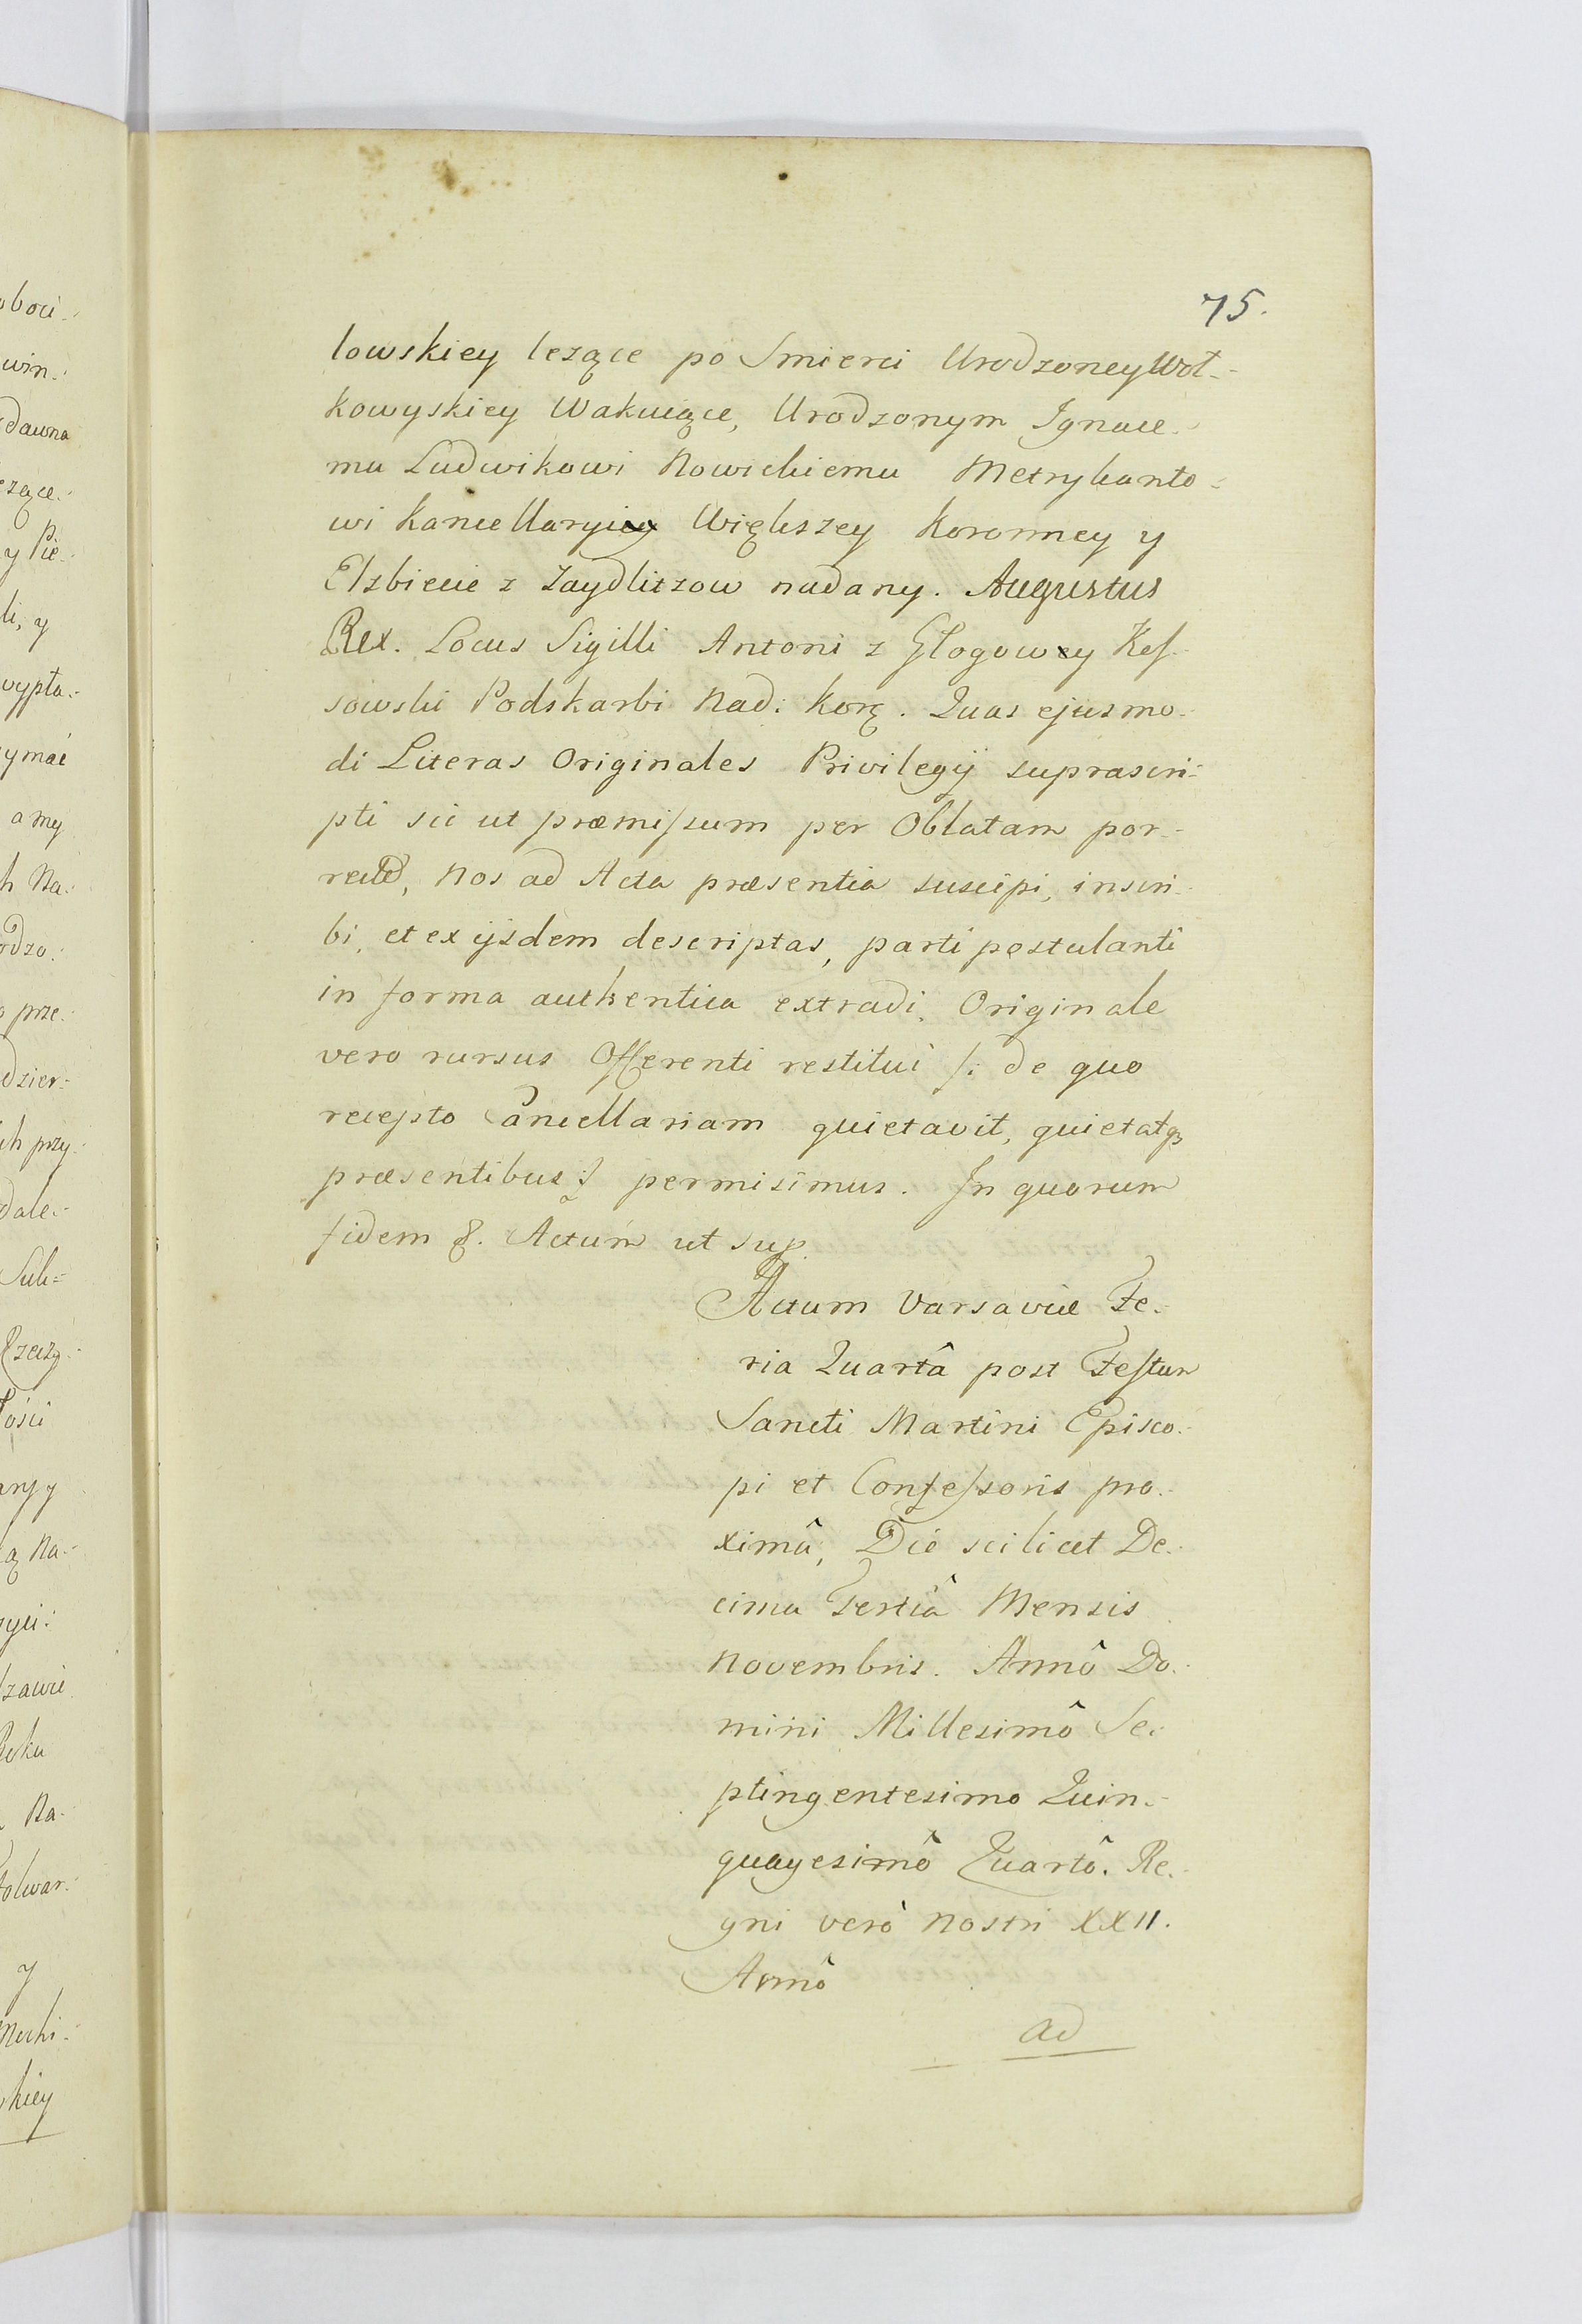 75.
lowskiey lezące po Smierci Urodzoney Woł-
kowyskiey Wakuiące, Urodzonym Ignace-
mu Ludwikowi Nowickiemu Metrykanto-
wi Kancellaryiey Większey Koronney y
Elzbiecie z Zaydlitzow nadany. Augustus
Rex. Locus Sigilli Antoni z Głogowey Kos-
sowski Podskarbi Nad: Korg. Quas ejusmo-
di Literas Originales Privilegij suprascri-
pti sic ut præmissum per Oblatam por-
rectas, Nos ad Acta præsentia suscipi, inscri-
bi, et ex ijsdem descriptas, parti postulanti
in forma authentica extradi, Originale
vero rursus Offerenti restitui /: de quo
recepto Cancellariam quietavit, quietatq3
præsentibus :/ permisimus. In quorum
fidem &. Actum ut sup.
Actum Varsaviæ Fe-
ria Quartâ post Festum
Sancti Martini Episco-
pi et Confessoris pro-
ximâ, Die scilicet De-
cima Tertiâ Mensis
Novembris. Annô Do-
mini Millesimô Se-
ptingentesimo Quin-
quagesimô Quartô. Re-
gni verò Nostri XXII.
Annô
ad